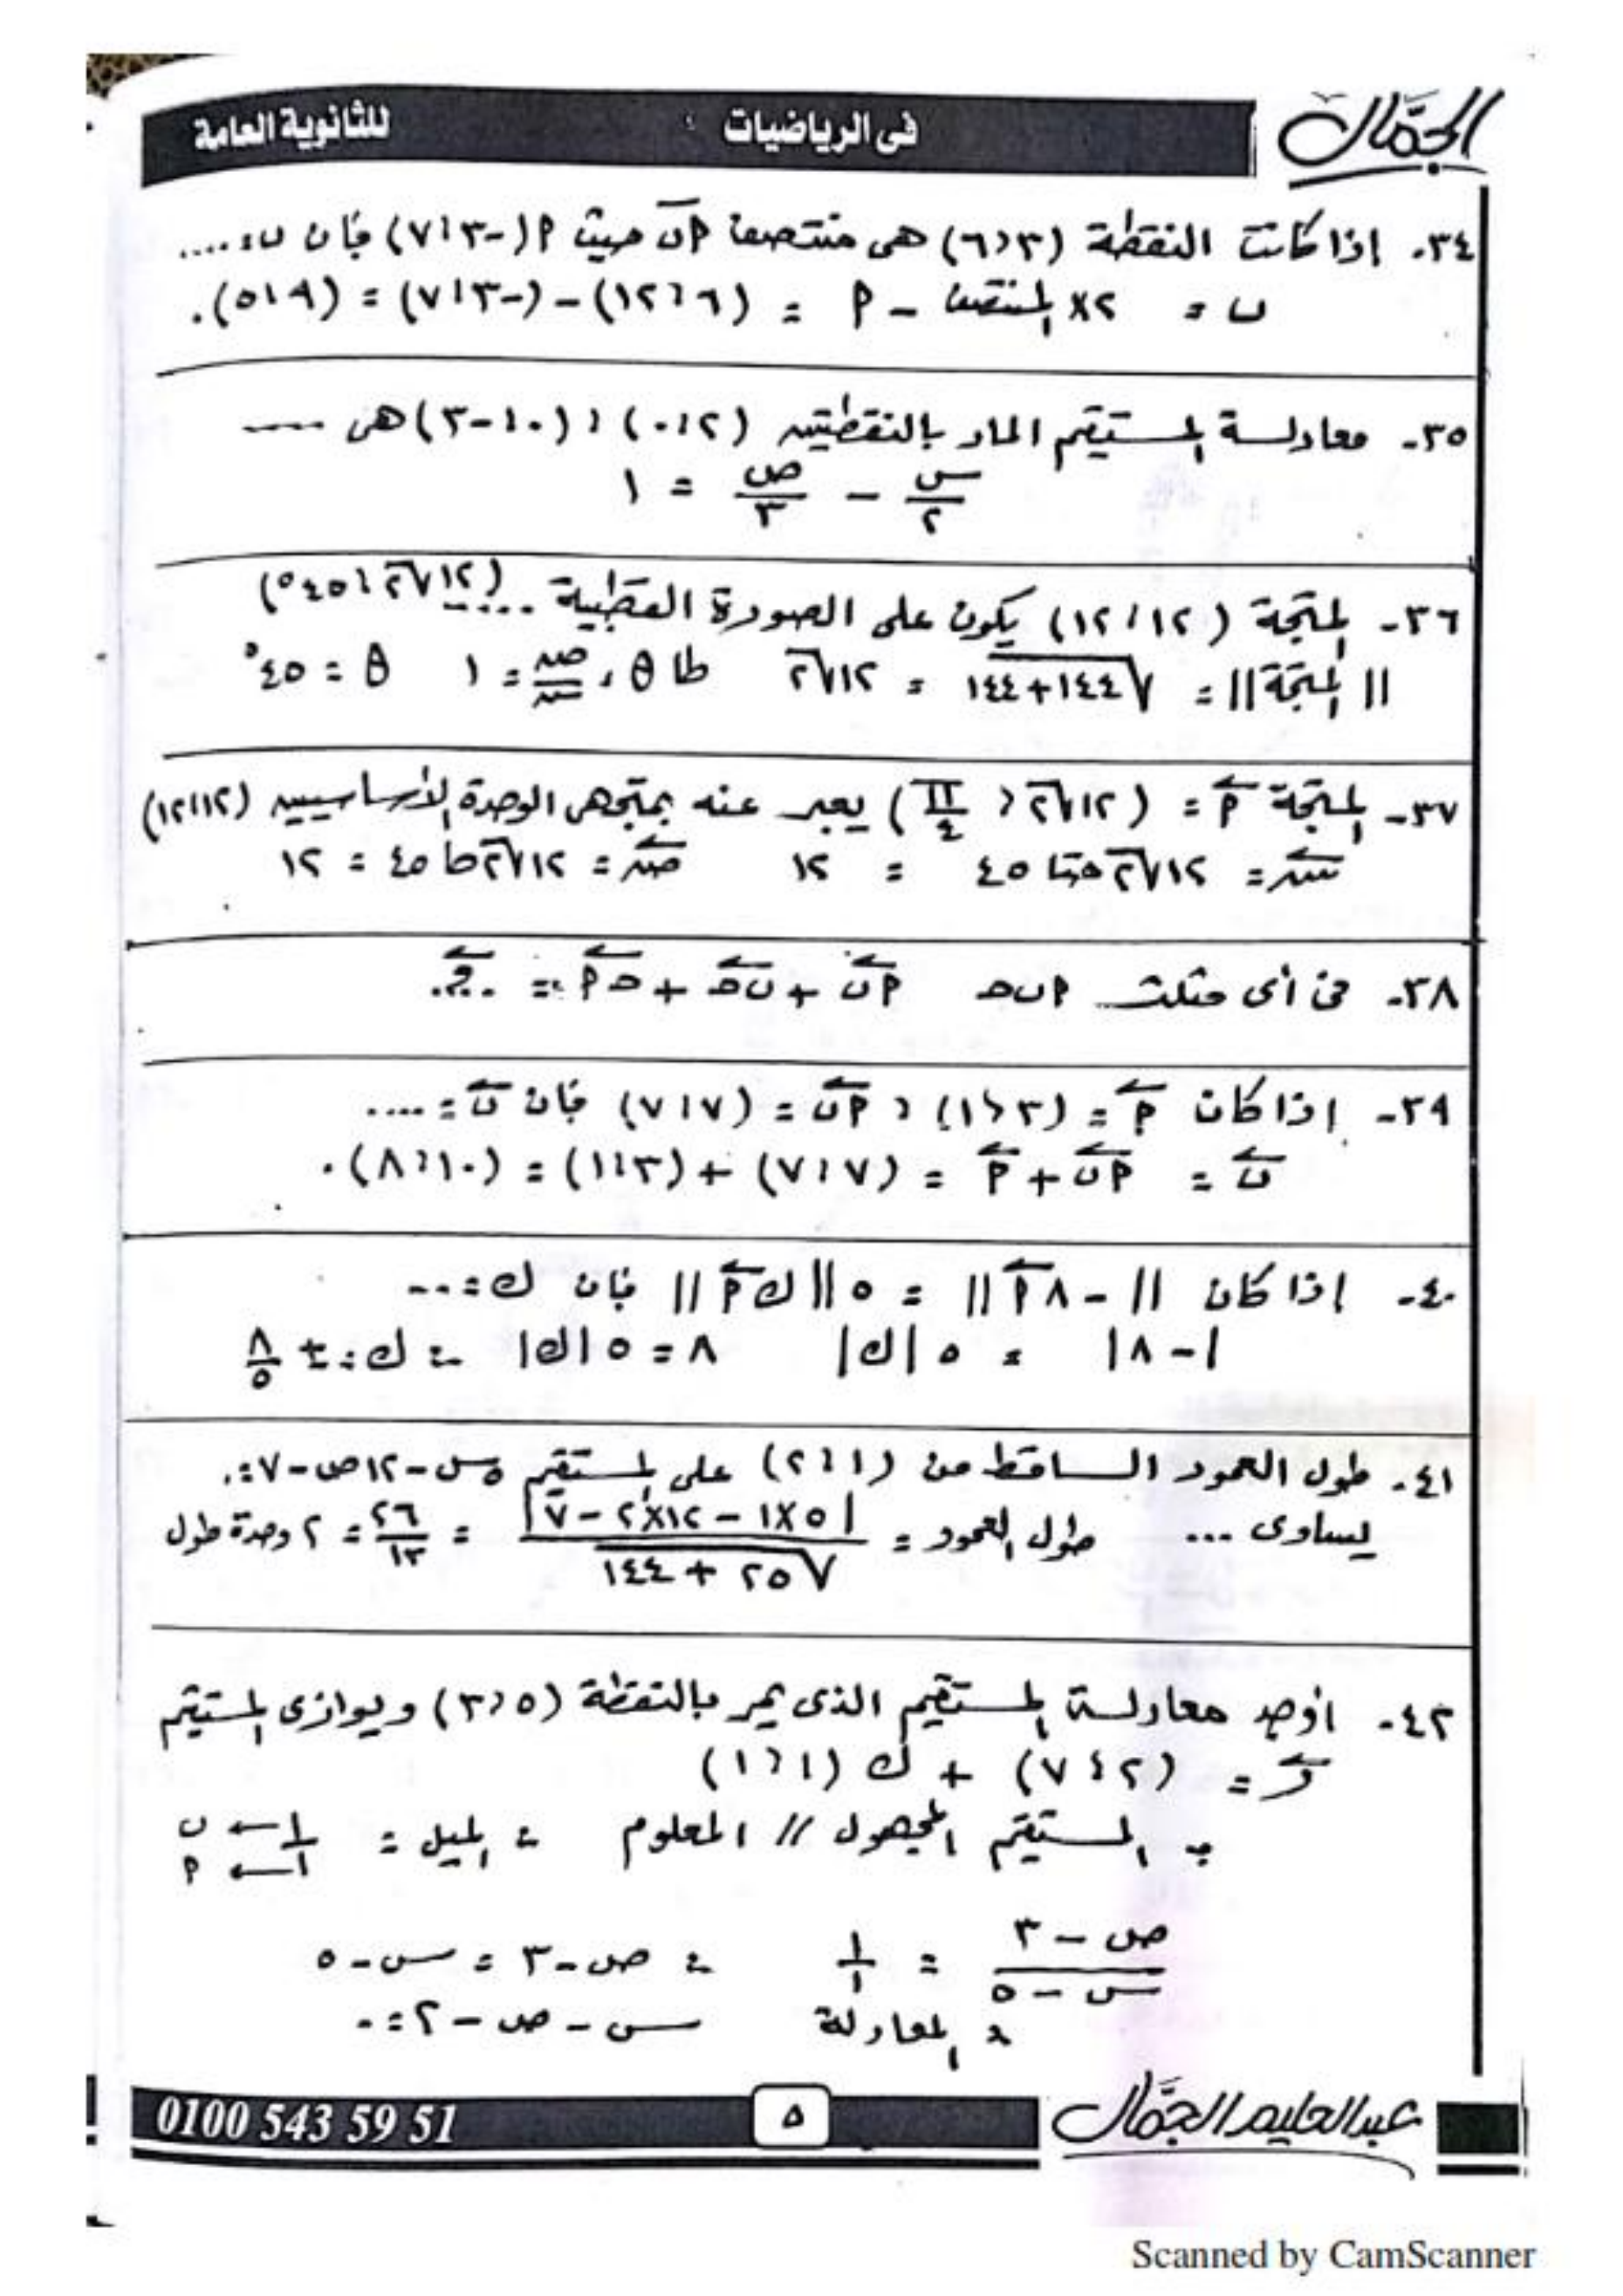 الجمَّال
فى الرياضيات
للثانوية العامة
٣٤- إذا كانت النقطة (٣، ٦) هى منتصف أب حيث أ(-٣، ٧) فإن ب = ....
ب = ٢× المنتصف - أ = (٦، ١٢) - (-٣، ٧) = (٩، ٥).
٣٥- معادلة المستقيم المار بالنقطتين (٢، ٠)، (٠، -٣) هى ----
س/٢ - ص/٣ = ١
٣٦- المتجة (١٢، ١٢) يكون على الصورة القطبية .... (١٢√٢، ٤٥°)
||المتجة|| = √(١٤٤+١٤٤) = ١٢√٢ طا θ = ص/س = ١ θ = ٤٥°
٣٧- المتجة أ = (١٢√٢، π/٤) يعبر عنه بمتجهى الوحدة الأساسيين (١٢، ١٢)
س = ١٢√٢ حتا ٤٥ = ١٢ ص = ١٢√٢ حا ٤٥ = ١٢
٣٨- فى أى مثلث أ ب حـ أب + ب حـ + حـ أ = .و.
٣٩- إذا كان أ = (٣، ١)، أب = (٧، ٧) فإن ب = ....
ب = أب + أ = (٧، ٧) + (٣، ١) = (١٠، ٨).
٤٠- إذا كان ||-٨ أ|| = ٥ ||ك أ|| فإن ك = ...
|-٨| = ٥|ك| ٨ = ٥|ك| ∴ ك = ± ٨/٥
٤١- طول العمود الساقط من (١، ٢) على المستقيم ٥س - ١٢ص - ٧ = ٠
يساوى ... طول العمود = |٥×١ - ١٢×٢ - ٧| / √(٢٥ + ١٤٤) = ٢٦/١٣ = ٢ وحدة طول
٤٢- أوجد معادلة المستقيم الذى يمر بالنقطة (٥، ٣) ويوازى المستقيم
ر = (٢، ٧) + ك (١، ١)
∵ المستقيم المجهول // المعلوم ∴ الميل = ١/١ ← ب ← أ
(ص - ٣)/(س - ٥) = ١/١ ∴ ص - ٣ = س - ٥
∴ المعادلة س - ص - ٢ = ٠
عبدالحليم الجمَّال
٥
0100 543 59 51
Scanned by CamScanner